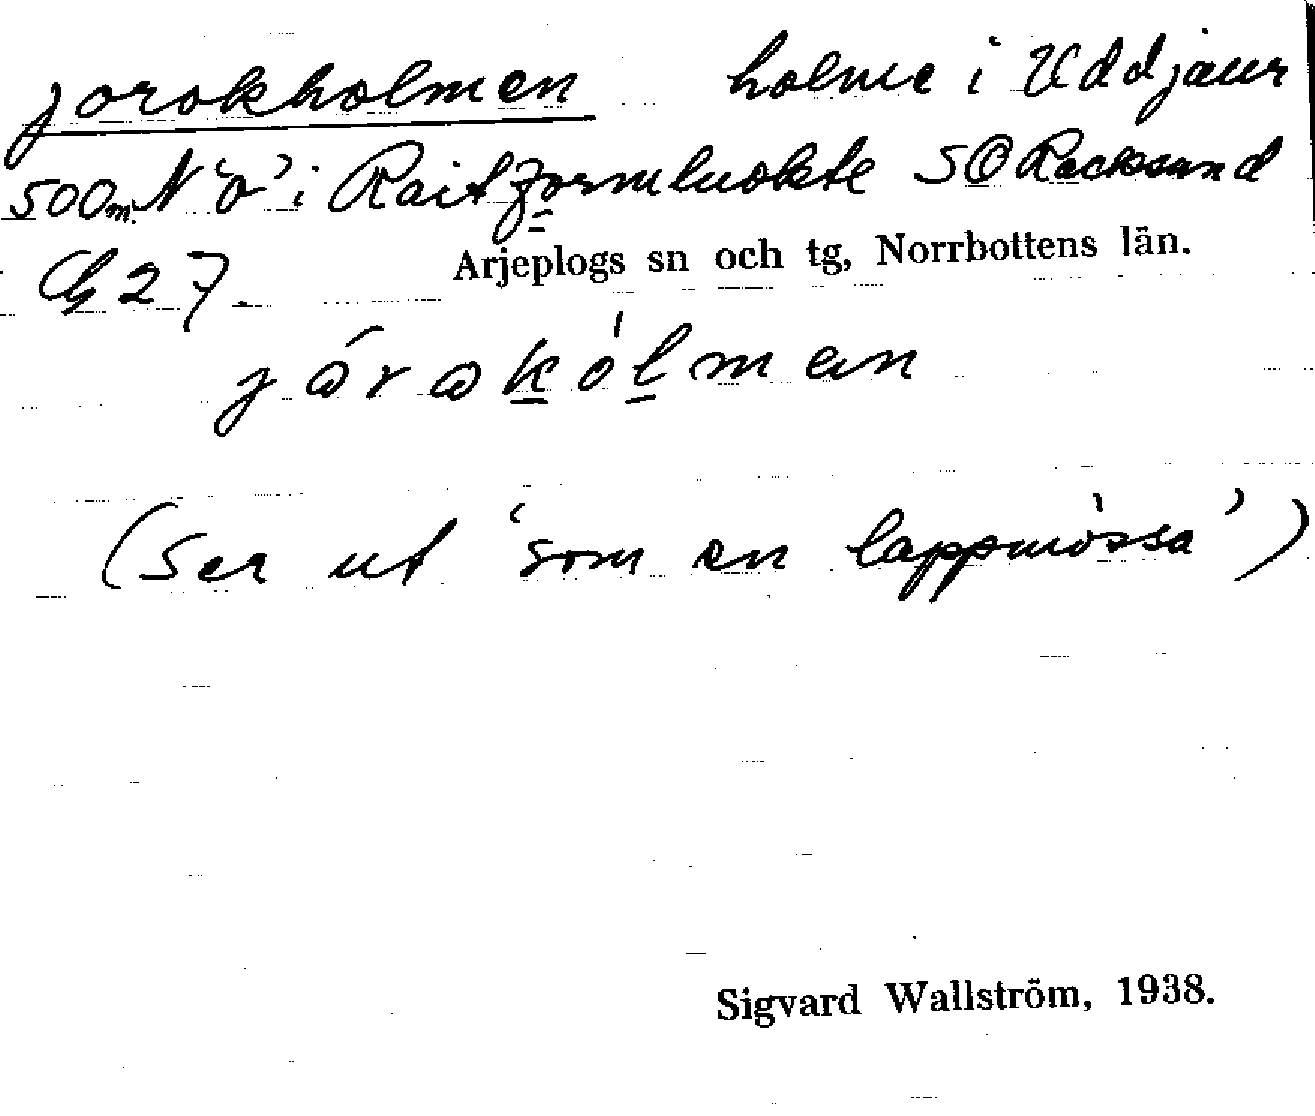 jorokholmen holme i Uddjaur
500m N 'o' i Raitjormluokte SO Racksund
G 27.
Arjeplogs sn och tg, Norrbottens län.
(Ser ut 'som en lappmössa')
Sigvard Wallström, 1938.